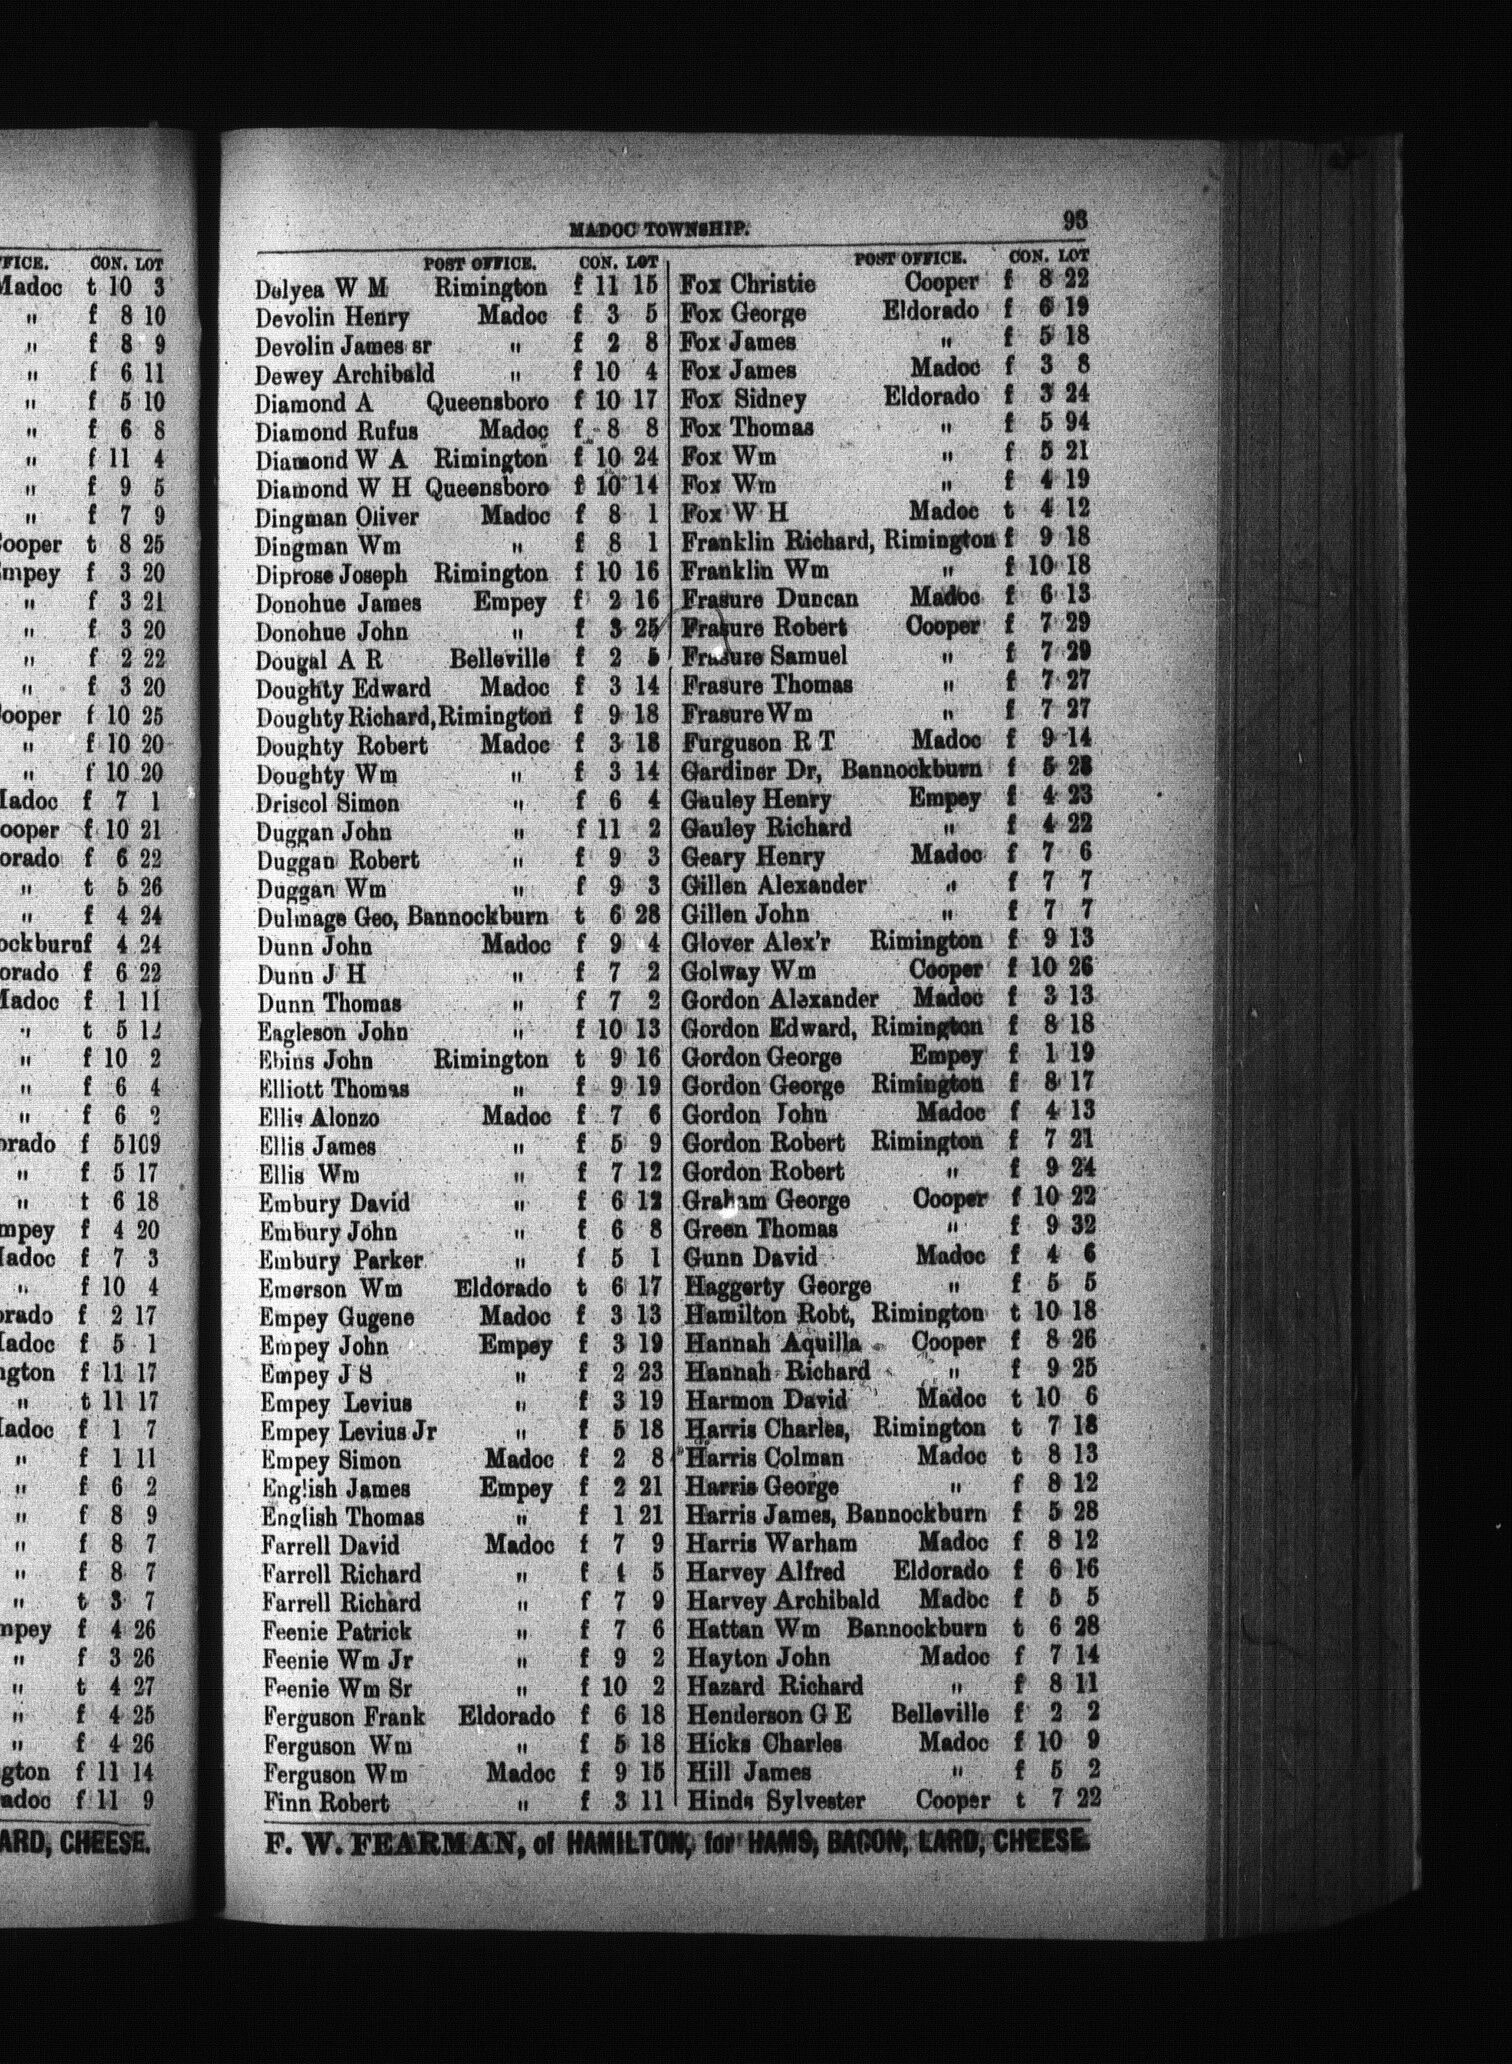 FFICE. CON. LOT
Madoc t 10 3
" f 8 10
" f 8 9
" f 6 11
" f 5 10
" f 6 8
" f 11 4
" f 9 5
" f 7 9
Cooper t 8 25
Empey f 3 20
" f 3 21
" f 3 20
" f 2 22
" f 3 20
Cooper f 10 25
" f 10 20
" f 10 20
Madoc f 7 1
ooper f 10 21
orado f 6 22
" t 5 26
" f 4 24
ockburn f 4 24
orado f 6 22
Madoc f 1 11
" t 5 12
" f 10 2
" f 6 4
" f 6 2
orado f 5 109
" f 5 17
" t 6 18
mpey f 4 20
Madoc f 7 3
" f 10 4
orado f 2 17
Madoc f 5 1
ngton f 11 17
" t 11 17
Madoc f 1 7
" f 1 11
" f 6 2
" f 8 9
" f 8 7
" f 8 7
" t 3 7
mpey f 4 26
" f 3 26
" t 4 27
" f 4 25
" f 4 26
gton f 11 14
adoc f 11 9
ARD, CHEESE.
MADOC TOWNSHIP. 93
POST OFFICE. CON. LOT
Delyea W M Rimington f 11 15
Devolin Henry Madoc f 3 5
Devolin James sr " f 2 8
Dewey Archibald " f 10 4
Diamond A Queensboro f 10 17
Diamond Rufus Madoc f 8 8
Diamond W A Rimington f 10 24
Diamond W H Queensboro f 10 14
Dingman Oliver Madoc f 8 1
Dingman Wm " f 8 1
Diprose Joseph Rimington f 10 16
Donohue James Empey f 2 16
Donohue John " f 3 25
Dougal A R Belleville f 2 5
Doughty Edward Madoc f 3 14
Doughty Richard, Rimington f 9 18
Doughty Robert Madoc f 3 18
Doughty Wm " f 3 14
Driscol Simon " f 6 4
Duggan John " f 11 2
Duggan Robert " f 9 3
Duggan Wm " f 9 3
Dulmage Geo, Bannockburn t 6 28
Dunn John Madoc f 9 4
Dunn J H " f 7 2
Dunn Thomas " f 7 2
Eagleson John " f 10 13
Ebins John Rimington t 9 16
Elliott Thomas " f 9 19
Ellis Alonzo Madoc f 7 6
Ellis James " f 5 9
Ellis Wm " f 7 12
Embury David " f 6 12
Embury John " f 6 8
Embury Parker " f 5 1
Emerson Wm Eldorado t 6 17
Empey Gugene Madoc f 3 13
Empey John Empey f 3 19
Empey J S " f 2 23
Empey Levius " f 3 19
Empey Levius Jr " f 5 18
Empey Simon Madoc f 2 8
English James Empey f 2 21
English Thomas " f 1 21
Farrell David Madoc f 7 9
Farrell Richard " f 4 5
Farrell Richard " f 7 9
Feenie Patrick " f 7 6
Feenie Wm Jr " f 9 2
Feenie Wm Sr " f 10 2
Ferguson Frank Eldorado f 6 18
Ferguson Wm " f 5 18
Ferguson Wm Madoc f 9 15
Finn Robert " f 3 11
POST OFFICE. CON. LOT
Fox Christie Cooper f 8 22
Fox George Eldorado f 6 19
Fox James " f 5 18
Fox James Madoc f 3 8
Fox Sidney Eldorado f 3 24
Fox Thomas " f 5 94
Fox Wm " f 5 21
Fox Wm " f 4 19
Fox W H Madoc t 4 12
Franklin Richard, Rimington f 9 18
Franklin Wm " f 10 18
Frasure Duncan Madoc f 6 13
Frasure Robert Cooper f 7 29
Frasure Samuel " f 7 29
Frasure Thomas " f 7 27
Frasure Wm " f 7 27
Furguson R T Madoc f 9 14
Gardiner Dr, Bannockburn f 5 28
Gauley Henry Empey f 4 23
Gauley Richard " f 4 22
Geary Henry Madoc f 7 6
Gillen Alexander " f 7 7
Gillen John " f 7 7
Glover Alex'r Rimington f 9 13
Golway Wm Cooper f 10 26
Gordon Alexander Madoc f 3 13
Gordon Edward, Rimington f 8 18
Gordon George Empey f 1 19
Gordon George Rimington f 8 17
Gordon John Madoc f 4 13
Gordon Robert Rimington f 7 21
Gordon Robert " f 9 24
Graham George Cooper f 10 22
Green Thomas " f 9 32
Gunn David Madoc f 4 6
Haggerty George " f 5 5
Hamilton Robt, Rimington t 10 18
Hannah Aquilla Cooper f 8 26
Hannah Richard " f 9 25
Harmon David Madoc t 10 6
Harris Charles, Rimington t 7 18
Harris Colman Madoc t 8 13
Harris George " f 8 12
Harris James, Bannockburn f 5 28
Harris Warham Madoc f 8 12
Harvey Alfred Eldorado f 6 16
Harvey Archibald Madoc f 5 5
Hattan Wm Bannockburn t 6 28
Hayton John Madoc f 7 14
Hazard Richard " f 8 11
Henderson G E Belleville f 2 2
Hicks Charles Madoc f 10 9
Hill James " f 5 2
Hinds Sylvester Cooper t 7 22
F. W. FEARMAN, of HAMILTON, for HAMS, BACON, LARD, CHEESE.